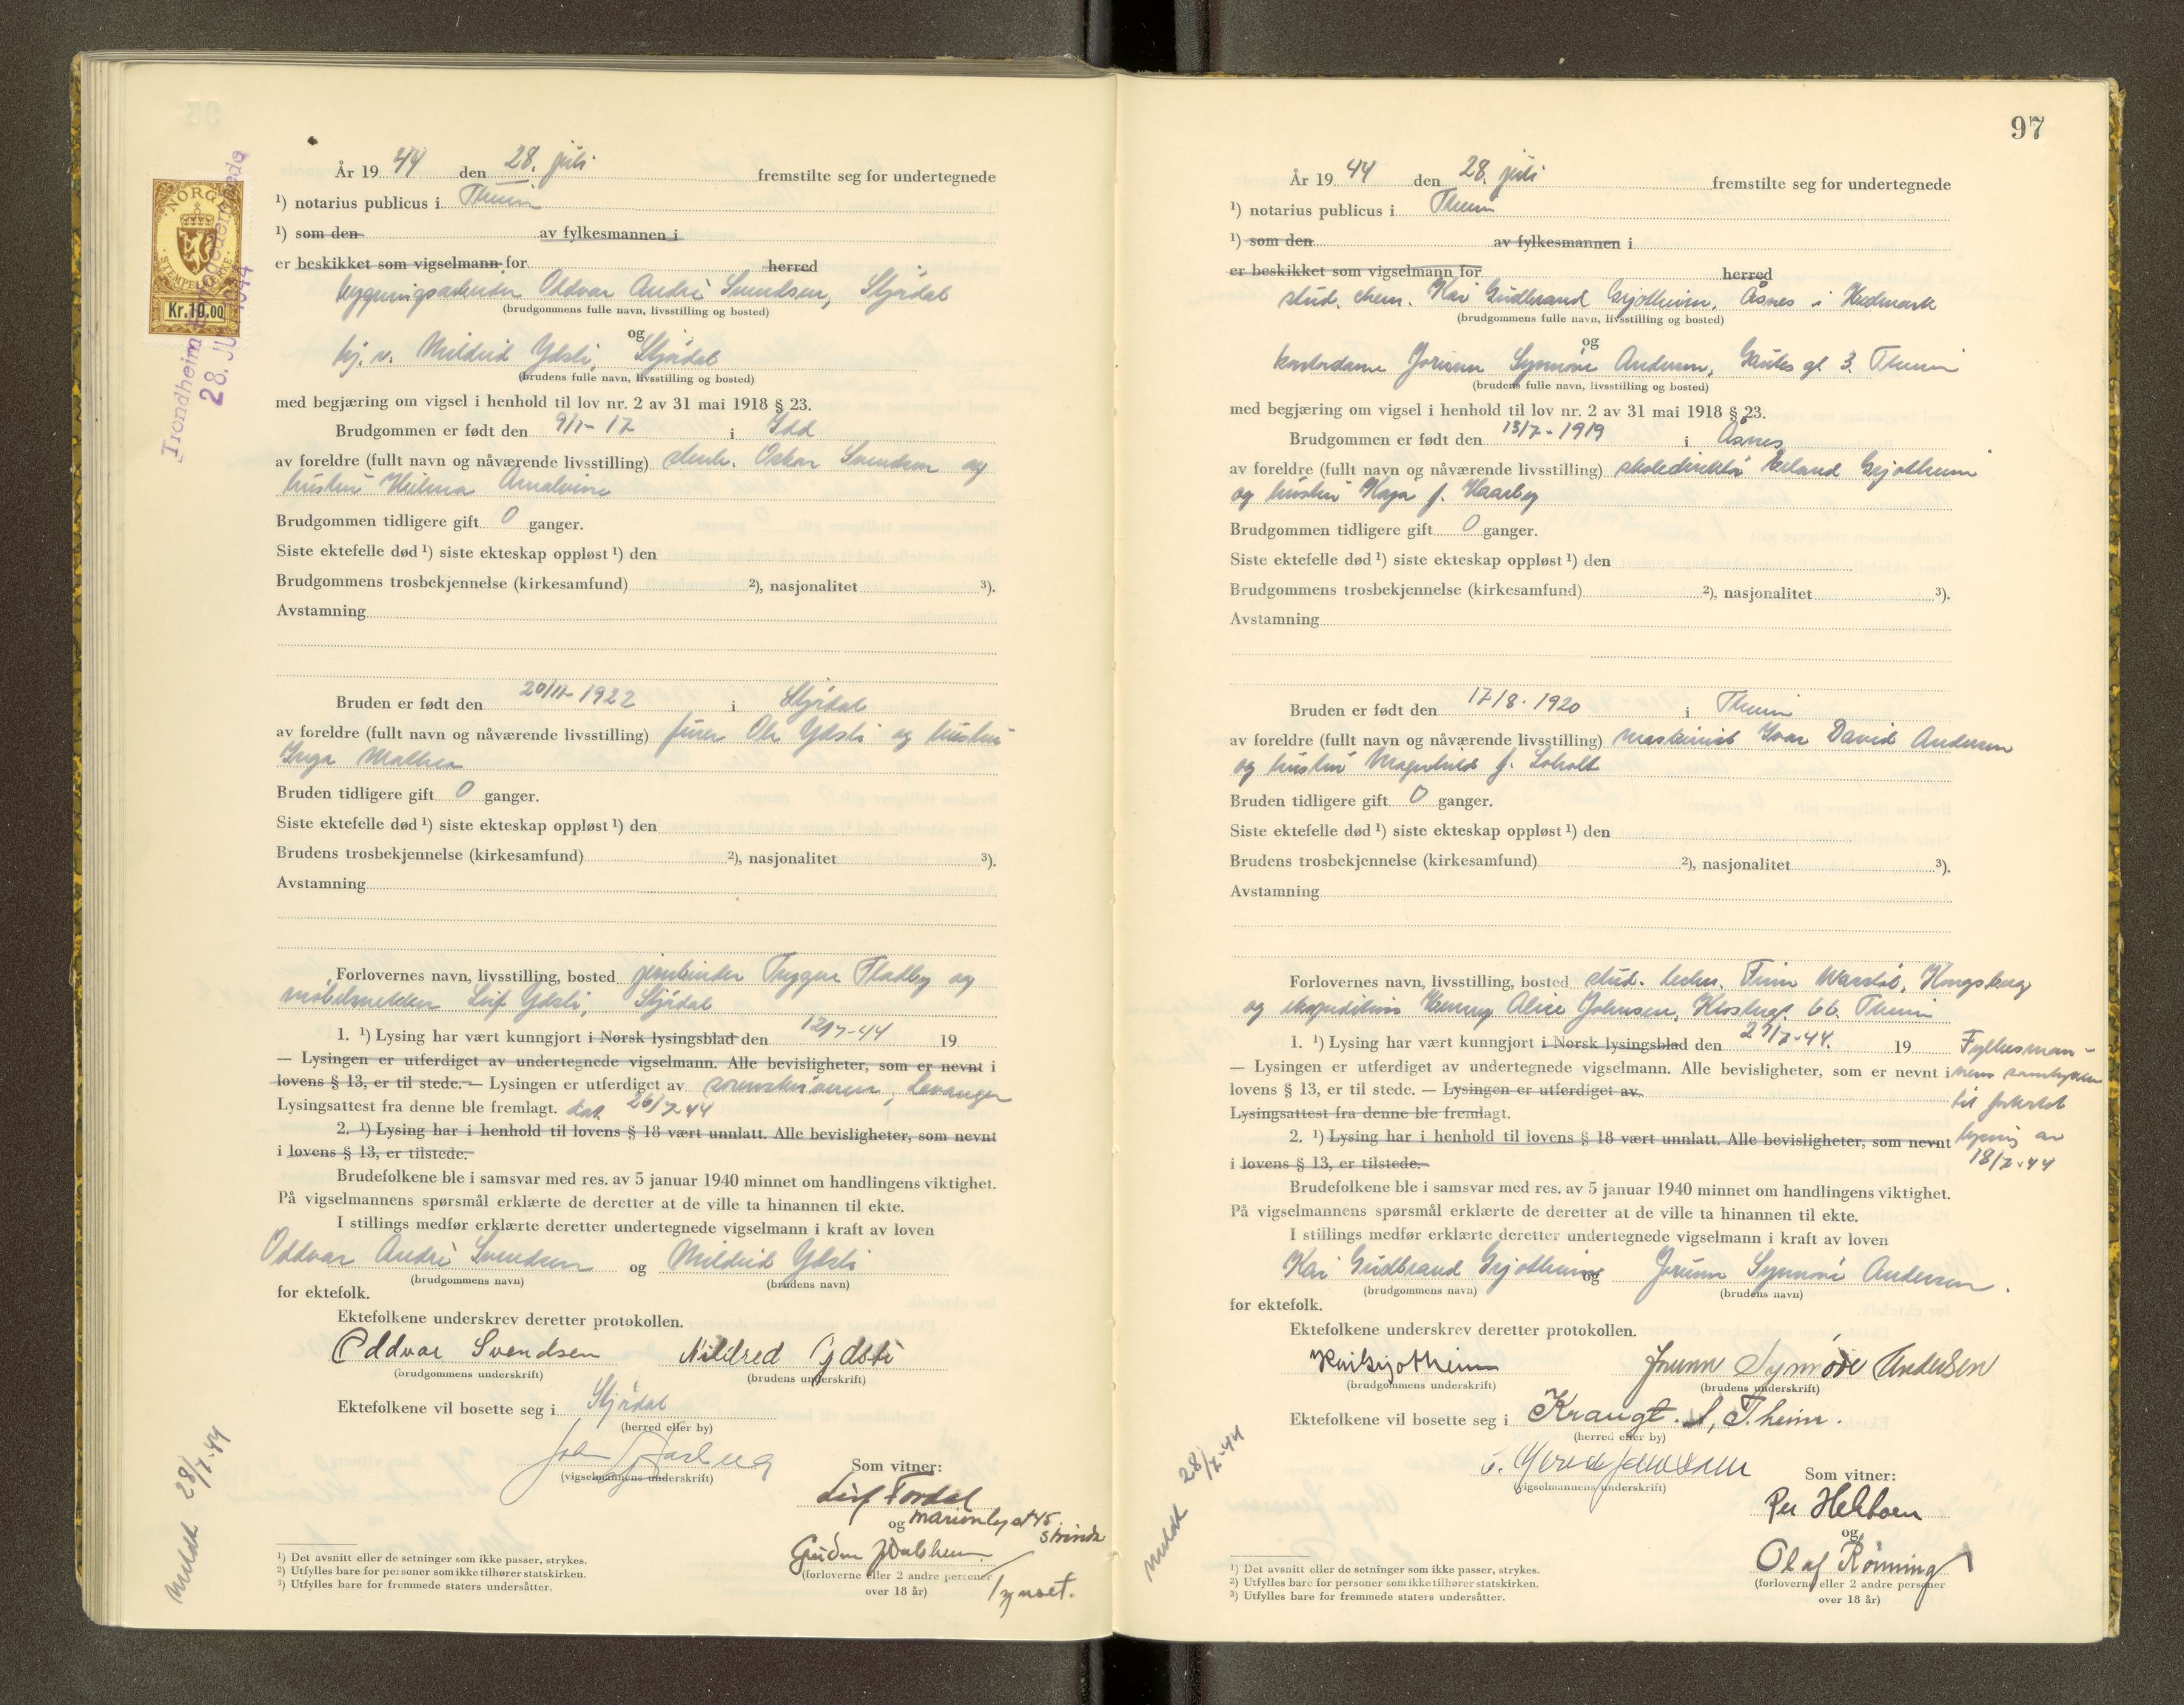 NORGE
STEMPELMERKE
Kr.10.00
Trondheim
28. JULI 1944
År 19 44 den 28. juli fremstilte seg for undertegnede
¹) notarius publicus i Theim
¹) som den av fylkesmannen i
er beskikket som vigselmann for herred
bygningsarbeider Oddvar André Svendsen, Stjørdal
(brudgommens fulle navn, livsstilling og bosted)
og
hj. v. Mildrid Ydsti, Stjørdal
(brudens fulle navn, livsstilling og bosted)
med begjæring om vigsel i henhold til lov nr. 2 av 31 mai 1918 § 23.
Brudgommen er født den 9/1- 17 i Idd
av foreldre (fullt navn og nåværende livsstilling) Oskar Svendsen og
hustru Hilma
Brudgommen tidligere gift 0 ganger.
Siste ektefelle død ¹) siste ekteskap oppløst ¹) den
Brudgommens trosbekjennelse (kirkesamfund) ²), nasjonalitet ³).
Avstamning
Bruden er født den 1922 i Stjørdal
av foreldre (fullt navn og nåværende livsstilling) Ole Ydsti og hustru
Inga Mathea
Bruden tidligere gift 0 ganger.
Siste ektefelle død ¹) siste ekteskap oppløst ¹) den
Brudens trosbekjennelse (kirkesamfund) ²), nasjonalitet ³).
Avstamning
Forlovernes navn, livsstilling, bosted jernbinder Trygve Fladby og
møbelsnekker Leif Ydsti, Stjørdal
1. ¹) Lysing har vært kunngjort i Norsk lysingsblad den 12/7-44 19
— Lysingen er utferdiget av undertegnede vigselmann. Alle bevisligheter, som er nevnt i
lovens § 13, er til stede. — Lysingen er utferdiget av sorenskriveren, Levanger
Lysingsattest fra denne ble fremlagt. dat. 26/7-44
2. ¹) Lysing har i henhold til lovens § 18 vært unnlatt. Alle bevisligheter, som nevnt
i lovens § 13, er tilstede.
Brudefolkene ble i samsvar med res. av 5 januar 1940 minnet om handlingens viktighet.
På vigselmannens spørsmål erklærte de deretter at de ville ta hinannen til ekte.
I stillings medfør erklærte deretter undertegnede vigselmann i kraft av loven
Oddvar André Svendsen og Mildrid Ydsti
(brudgommens navn) (brudens navn)
for ektefolk.
Ektefolkene underskrev deretter protokollen.
Oddvar Svendsen Mildred Ydsti
(brudgommens underskrift) (brudens underskrift)
Ektefolkene vil bosette seg i Stjørdal
(herred eller by)
(vigselmannens underskrift) Som vitner:
Leif Fordal
og Marienlyst 45
Strinda
Gudrun
(forloverne eller 2 andre personer
over 18 år) Tynset.
meldt 28/7-44
¹) Det avsnitt eller de setninger som ikke passer, strykes.
²) Utfylles bare for personer som ikke tilhører statskirken.
³) Utfylles bare for fremmede staters undersåtter.
97
År 19 44 den 28. juli fremstilte seg for undertegnede
¹) notarius publicus i Theim
¹) som den av fylkesmannen i
er beskikket som vigselmann for herred
stud. chem. Kai Gudbrand Grjotheim, Åsnes i Hedmark
(brudgommens fulle navn, livsstilling og bosted)
og
kontordame Jorunn Synnøve Andersen, Gautes gt 3. Theim
(brudens fulle navn, livsstilling og bosted)
med begjæring om vigsel i henhold til lov nr. 2 av 31 mai 1918 § 23.
Brudgommen er født den 13/7-1919 i Åsnes
av foreldre (fullt navn og nåværende livsstilling) skoledirektør Grjotheim
og hustru Kaja f. Haarbye
Brudgommen tidligere gift 0 ganger.
Siste ektefelle død ¹) siste ekteskap oppløst ¹) den
Brudgommens trosbekjennelse (kirkesamfund) ²), nasjonalitet ³).
Avstamning
Bruden er født den 17/8. 1920 i Theim
av foreldre (fullt navn og nåværende livsstilling) maskinist Ivar David Andersen
og hustru Magnhild f. Solholt
Bruden tidligere gift 0 ganger.
Siste ektefelle død ¹) siste ekteskap oppløst ¹) den
Brudens trosbekjennelse (kirkesamfund) ²), nasjonalitet ³).
Avstamning
Forlovernes navn, livsstilling, bosted stud. techn. Finn Kongsberg
og Alice Johnsen, Klostergt. 66. Theim
1. ¹) Lysing har vært kunngjort i Norsk lysingsblad den 27/7-44. 19 Fylkesman-
— Lysingen er utferdiget av undertegnede vigselmann. Alle bevisligheter, som er nevnt i nens samtykke
lovens § 13, er til stede. — Lysingen er utferdiget av til forkortet
Lysingsattest fra denne ble fremlagt.
2. ¹) Lysing har i henhold til lovens § 18 vært unnlatt. Alle bevisligheter, som nevnt lysing av
i lovens § 13, er tilstede. 18/7-44
Brudefolkene ble i samsvar med res. av 5 januar 1940 minnet om handlingens viktighet.
På vigselmannens spørsmål erklærte de deretter at de ville ta hinannen til ekte.
I stillings medfør erklærte deretter undertegnede vigselmann i kraft av loven
Kai Gudbrand Grjotheim og Jorunn Synnøve Andersen.
(brudgommens navn) (brudens navn)
for ektefolk.
Ektefolkene underskrev deretter protokollen.
Kai Grjotheim Jorunn Synnøve Andersen
(brudgommens underskrift) (brudens underskrift)
Ektefolkene vil bosette seg i Krangt. 1, T.heim.
(herred eller by)
(vigselmannens underskrift) Som vitner:
Per
og
Olaf Rønning
(forloverne eller 2 andre personer
over 18 år)
meldt 28/7-44
¹) Det avsnitt eller de setninger som ikke passer, strykes.
²) Utfylles bare for personer som ikke tilhører statskirken.
³) Utfylles bare for fremmede staters undersåtter.